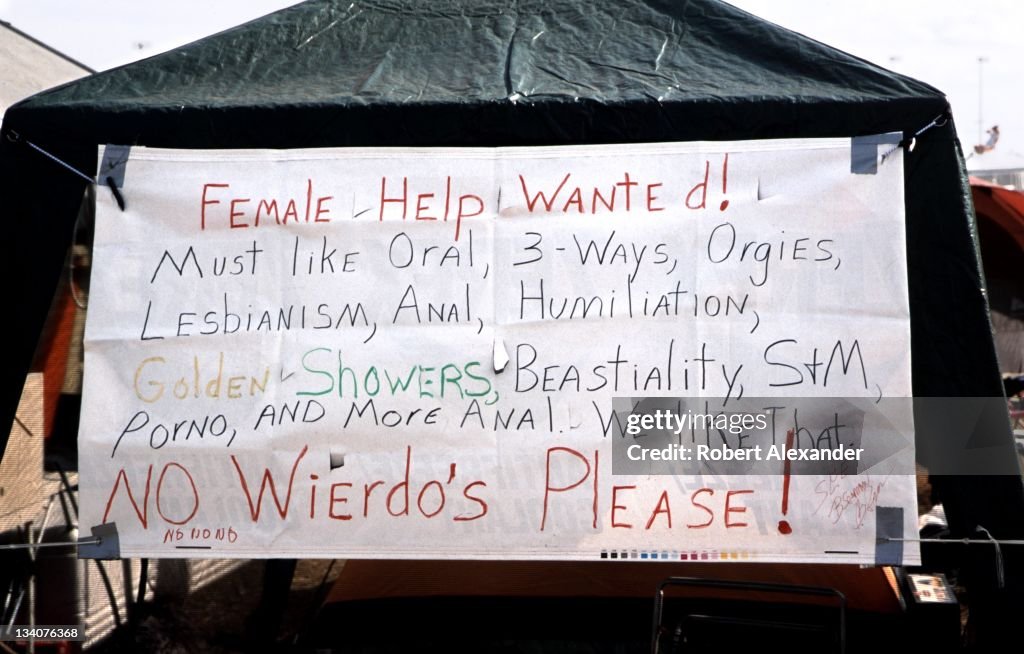 FEMALE HELP WANTEd!
Must like Oral, 3-Ways, Orgies,
LESbiANISM, ANAL, Humiliation,
Golden Showers, Beastiality, S+M,
Porno, AND More ANAL. We like That.
NO Wierdo's Please!
NO NO NO
gettyimages
Robert Alexander
134076368